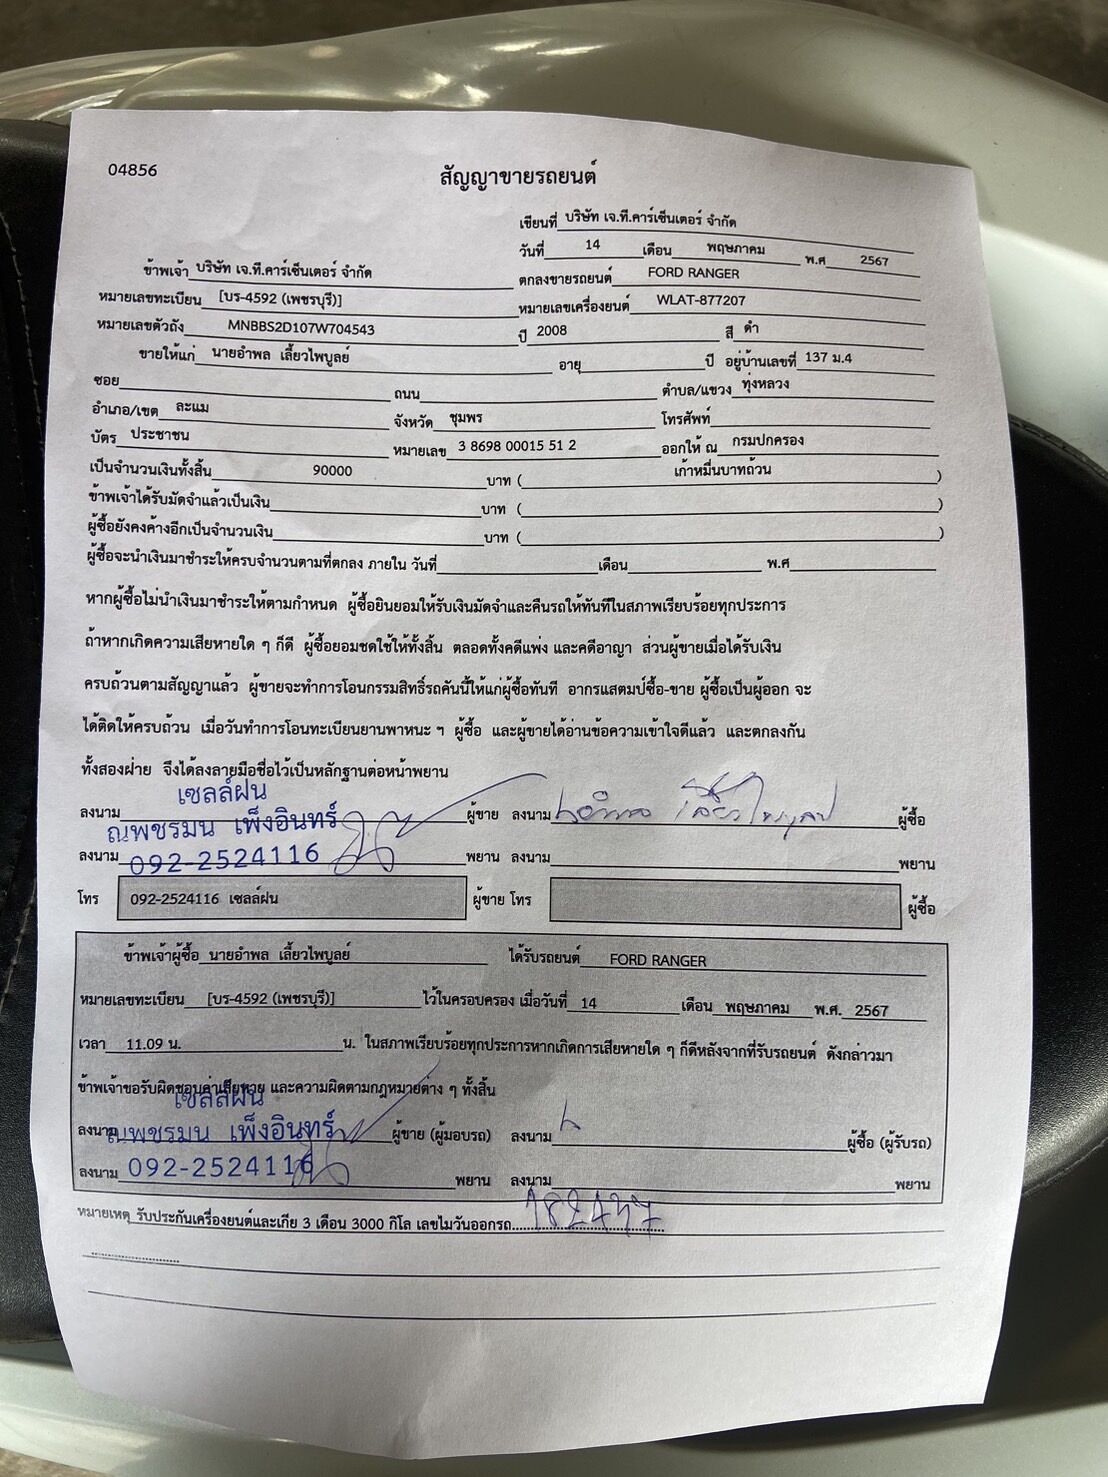 04856
สัญญาขายรถยนต์
เขียนที่ บริษัท เจ.ที.คาร์เซ็นเตอร์ จำกัด
วันที่ 14 เดือน พฤษภาคม พ.ศ 2567
ข้าพเจ้า บริษัท เจ.ที.คาร์เซ็นเตอร์ จำกัด ตกลงขายรถยนต์ FORD RANGER
หมายเลขทะเบียน [บร-4592 (เพชรบุรี)] หมายเลขเครื่องยนต์ WLAT-877207
หมายเลขตัวถัง MNBBS2D107W704543 ปี 2008 สี ดำ
ขายให้แก่ นายอำพล เลี้ยวไพบูลย์ อายุ ปี อยู่บ้านเลขที่ 137 ม.4
ซอย ถนน ตำบล/แขวง ทุ่งหลวง
อำเภอ/เขต ละแม จังหวัด ชุมพร โทรศัพท์
บัตร ประชาชน หมายเลข 3 8698 00015 51 2 ออกให้ ณ กรมปกครอง
เป็นจำนวนเงินทั้งสิ้น 90000 บาท ( เก้าหมื่นบาทถ้วน )
ข้าพเจ้าได้รับมัดจำแล้วเป็นเงิน บาท ( )
ผู้ซื้อยังคงค้างอีกเป็นจำนวนเงิน บาท ( )
ผู้ซื้อจะนำเงินมาชำระให้ครบจำนวนตามที่ตกลง ภายใน วันที่ เดือน พ.ศ
หากผู้ซื้อไม่นำเงินมาชำระให้ตามกำหนด ผู้ซื้อยินยอมให้รับเงินมัดจำและคืนรถให้ทันทีในสภาพเรียบร้อยทุกประการ
ถ้าหากเกิดความเสียหายใด ๆ ก็ดี ผู้ซื้อยอมชดใช้ให้ทั้งสิ้น ตลอดทั้งคดีแพ่ง และคดีอาญา ส่วนผู้ขายเมื่อได้รับเงิน
ครบถ้วนตามสัญญาแล้ว ผู้ขายจะทำการโอนกรรมสิทธิ์รถคันนี้ให้แก่ผู้ซื้อทันที อากรแสตมป์ซื้อ-ขาย ผู้ซื้อเป็นผู้ออก จะ
ได้ติดให้ครบถ้วน เมื่อวันทำการโอนทะเบียนยานพาหนะ ฯ ผู้ซื้อ และผู้ขายได้อ่านข้อความเข้าใจดีแล้ว และตกลงกัน
ทั้งสองฝ่าย จึงได้ลงลายมือชื่อไว้เป็นหลักฐานต่อหน้าพยาน
เซลล์ฝน
ลงนาม ผู้ขาย ลงนาม อำพล เลี้ยวไพบูลย์ ผู้ซื้อ
ณพชรมน เพ็งอินทร์
ลงนาม 092-2524116 พยาน ลงนาม พยาน
โทร 092-2524116 เซลล์ฝน ผู้ขาย โทร ผู้ซื้อ
ข้าพเจ้าผู้ซื้อ นายอำพล เลี้ยวไพบูลย์ ได้รับรถยนต์ FORD RANGER
หมายเลขทะเบียน [บร-4592 (เพชรบุรี)] ไว้ในครอบครอง เมื่อวันที่ 14 เดือน พฤษภาคม พ.ศ. 2567
เวลา 11.09 น. น. ในสภาพเรียบร้อยทุกประการหากเกิดการเสียหายใด ๆ ก็ดีหลังจากที่รับรถยนต์ ดังกล่าวมา
ข้าพเจ้าขอรับผิดชอบค่าเสียหาย และความผิดตามกฎหมายต่าง ๆ ทั้งสิ้น
เซลล์ฝน
ลงนาม ณพชรมน เพ็งอินทร์ ผู้ขาย (ผู้มอบรถ) ลงนาม ผู้ซื้อ (ผู้รับรถ)
ลงนาม 092-2524116 พยาน ลงนาม พยาน
หมายเหตุ รับประกันเครื่องยนต์และเกีย 3 เดือน 3000 กิโล เลขไมวันออกรถ 182447